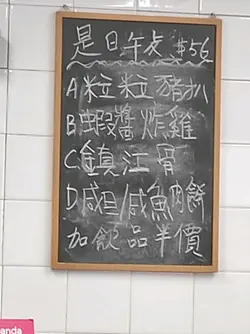 是日午飯 $56
A粒粒豬扒
B蝦醬炸雞
C鎮江骨
D咸旦/咸魚肉餅
加飲品半價
anda